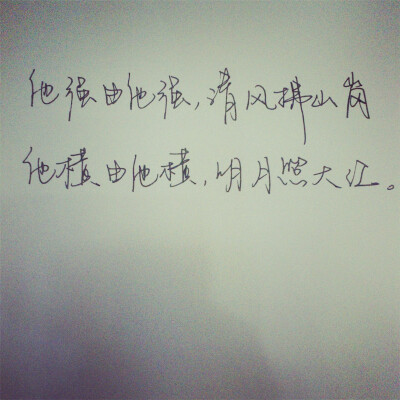 他强由他强，清风拂山岗
他横由他横，明月照大江。